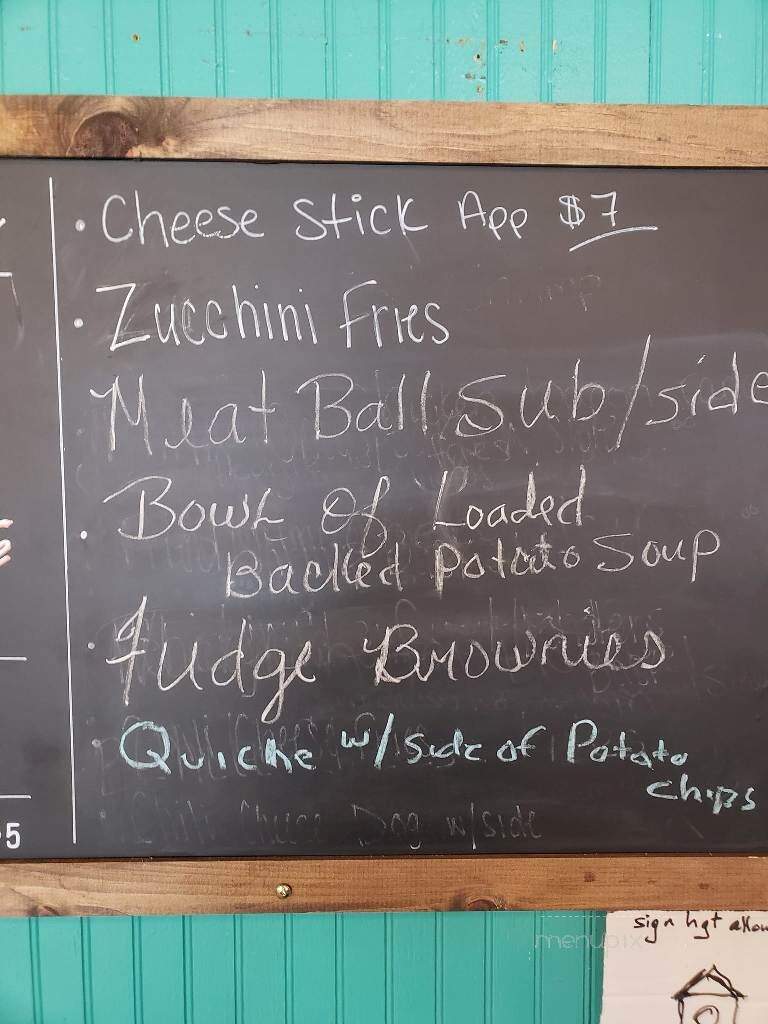 • Cheese Stick App $7
• Zucchini Fries
Meat Ball Sub/side
• Bowl Of Loaded
Backed Potato Soup
• Fudge Brownies
• Quiche w/ side of Potato
chips
Chili Cheese Dog w/side
5
sign hgt allow
menupix